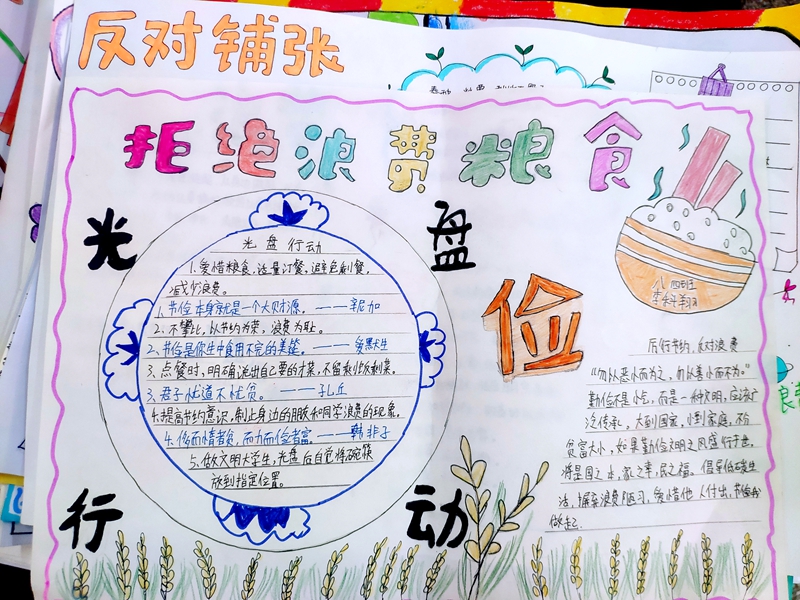 反对铺张
拒绝浪费粮食
光盘
行动
俭
光盘行动
1.爱惜粮食,适量订餐,避免剩餐,
减少浪费。
1.节俭本身就是一个大财源。——辛尼加
2.不攀比,以节约为荣,浪费为耻。
2.节俭是你一生中食用不完的美筵。——爱默生
3.点餐时,明确说出自己要的才菜,不留剩饭剩菜。
3.君子忧道不忧贫。——孔丘
4.提高节约意识,制止身边的朋友和同学浪费的现象。
4.侈而惰者贫,而力而俭者富。——韩非子
5.做文明大学生,光盘后自觉将碗筷
放到指定位置。
八四班
厉行节约,反对浪费
“勿以恶小而为之,勿以善小而不为。”
勤俭不是小气,而是一种文明,应该广
泛传承,大到国家,小到家庭,不分
贫富大小,如果勤俭文明之风盛行于世,
将是国之本,家之幸,民之福。倡导低碳生
活,摒弃浪费陋习,爱惜他人付出,节俭我
做起。